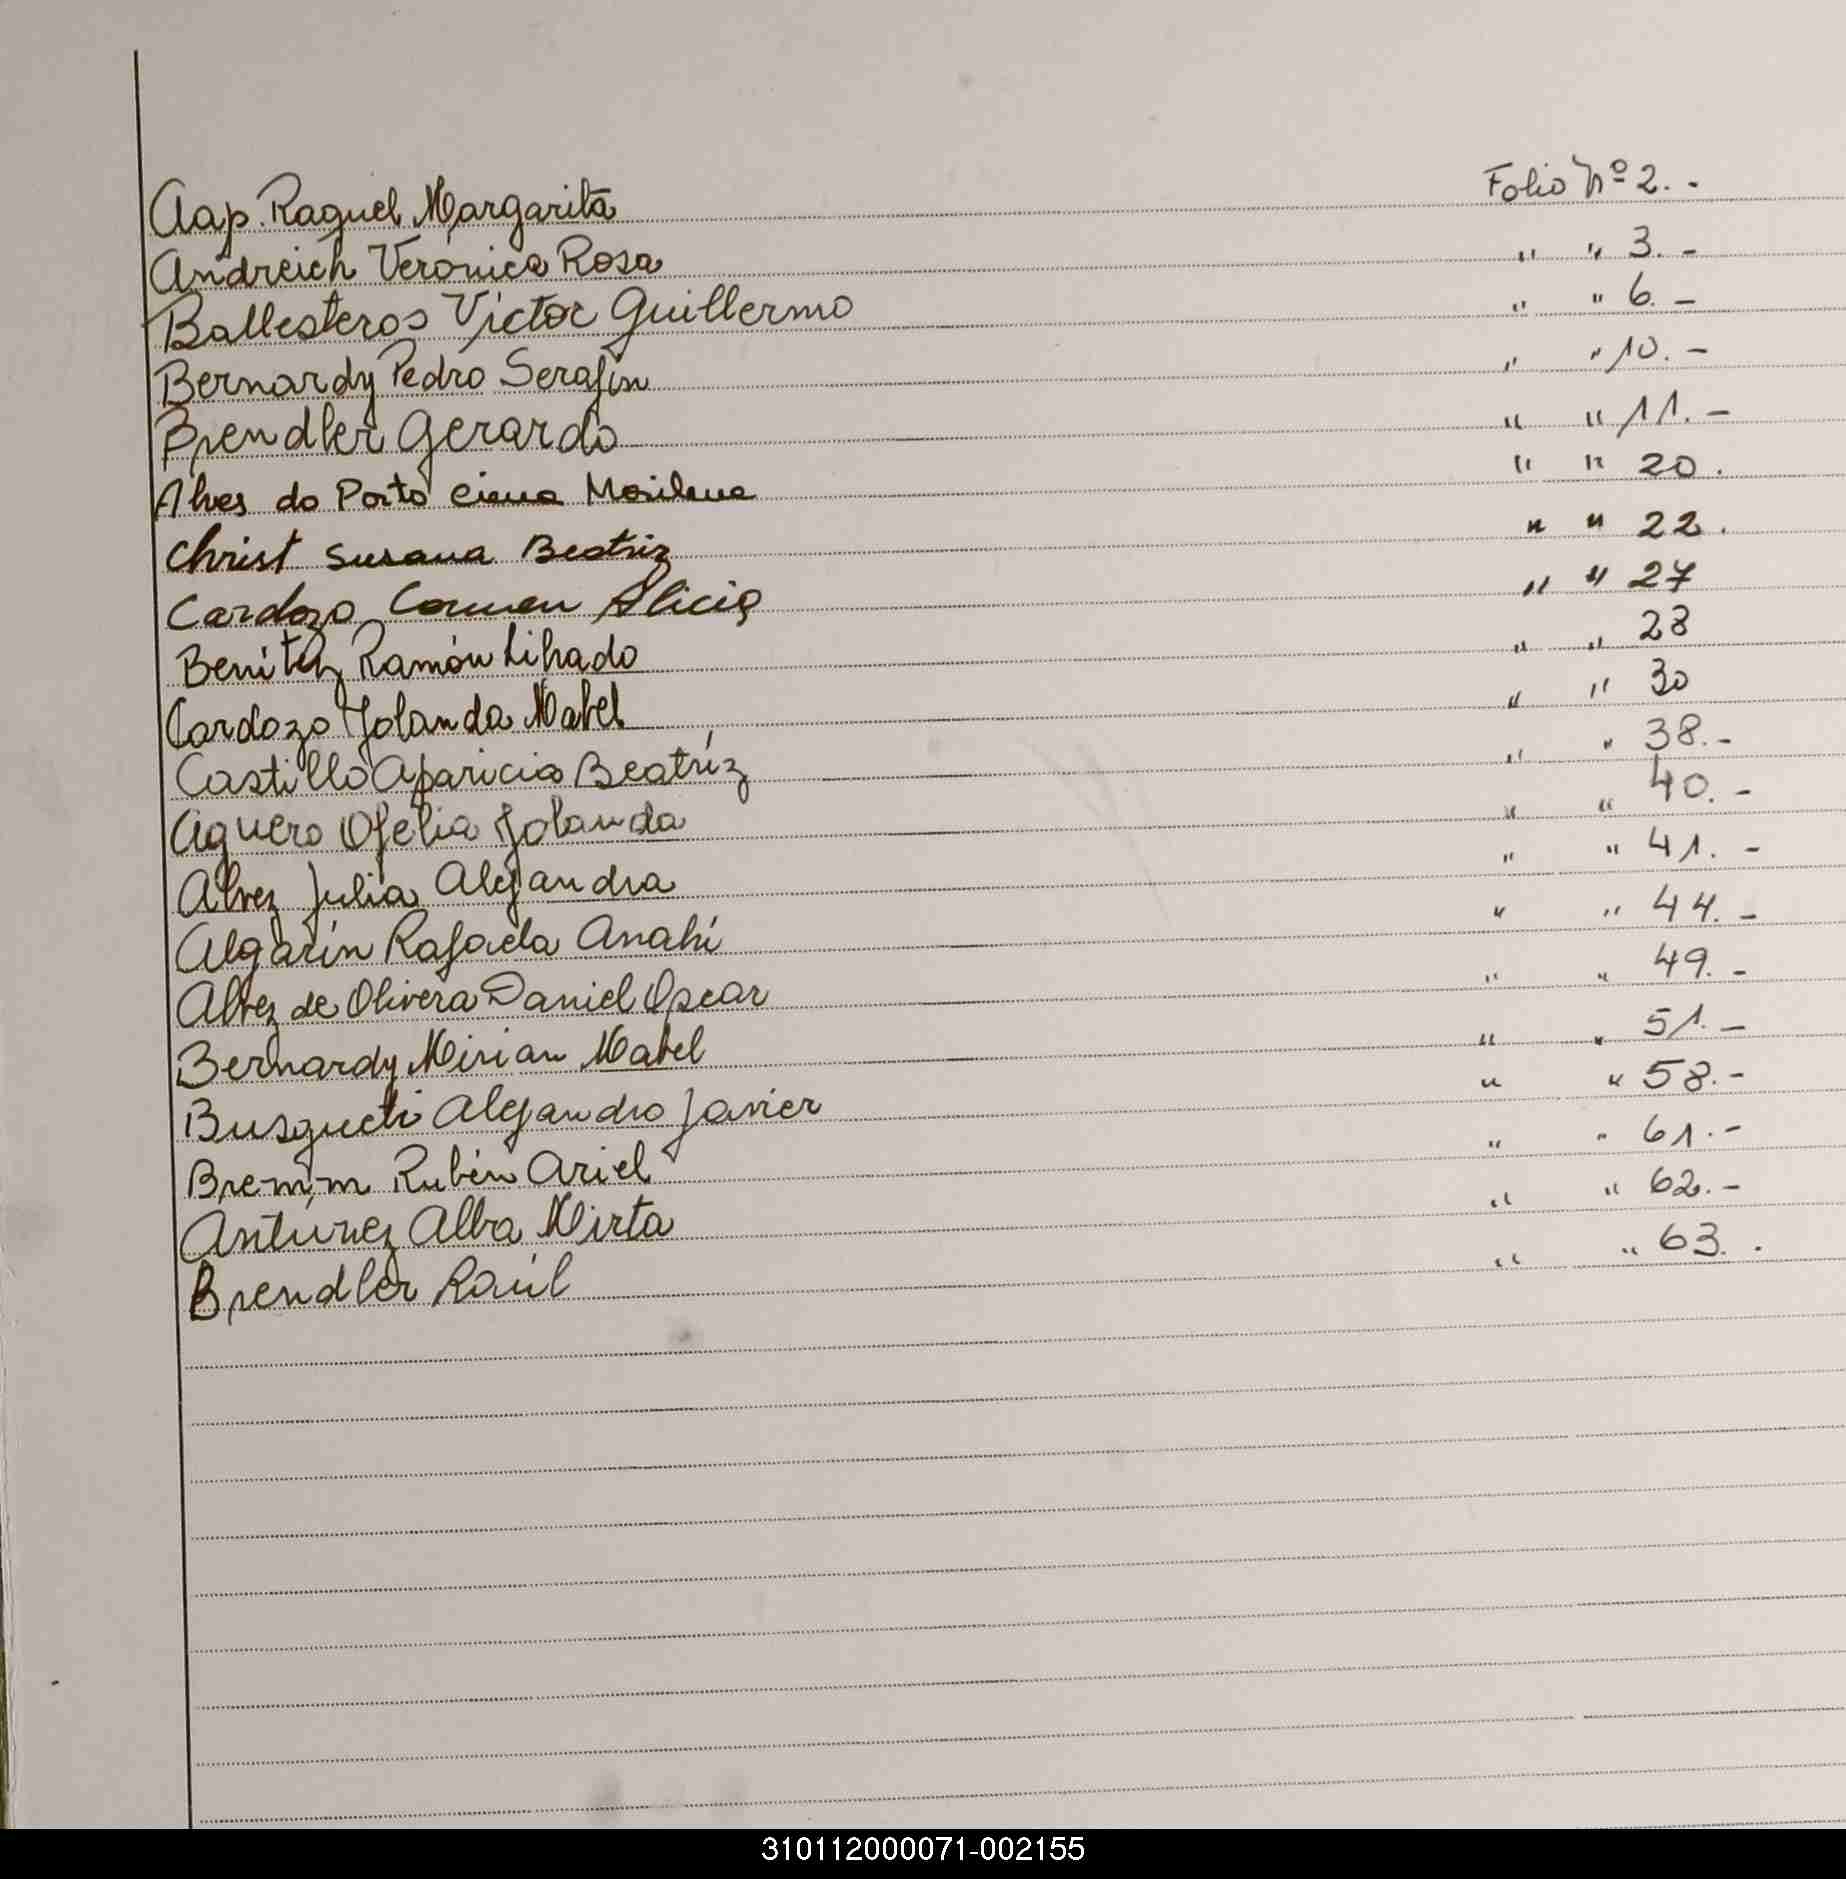 Aap Raquel Margarita Folio Nº 2.-
Andreich Verónica Rosa " " 3.-
Ballesteros Víctor Guillermo " " 6.-
Bernardy Pedro Serafín " " 10.-
Brendler Gerardo " " 11.-
Alves do Porto Marilene " " 20.
Christ Susana Beatriz " " 22.
Cardozo Carmen Alicia " " 27
Benítez Ramón Librado " " 28
Cardozo Yolanda Mabel " " 30
Castillo Aparicia Beatríz " " 38.-
Aguero Ofelia Yolanda " " 40.-
Alvez Julia Alejandra " " 41.-
Algarín Rafaela Anahí " " 44.-
Alvez de Olivera Daniel Oscar " " 49.-
Bernardy Mirian Mabel " " 51.-
Busqueti Alejandro Javier " " 58.-
Bremm Rubén Ariel " " 61.-
Antúnez Alba Mirta " " 62.-
Brendler Raúl " " 63..
310112000071-002155